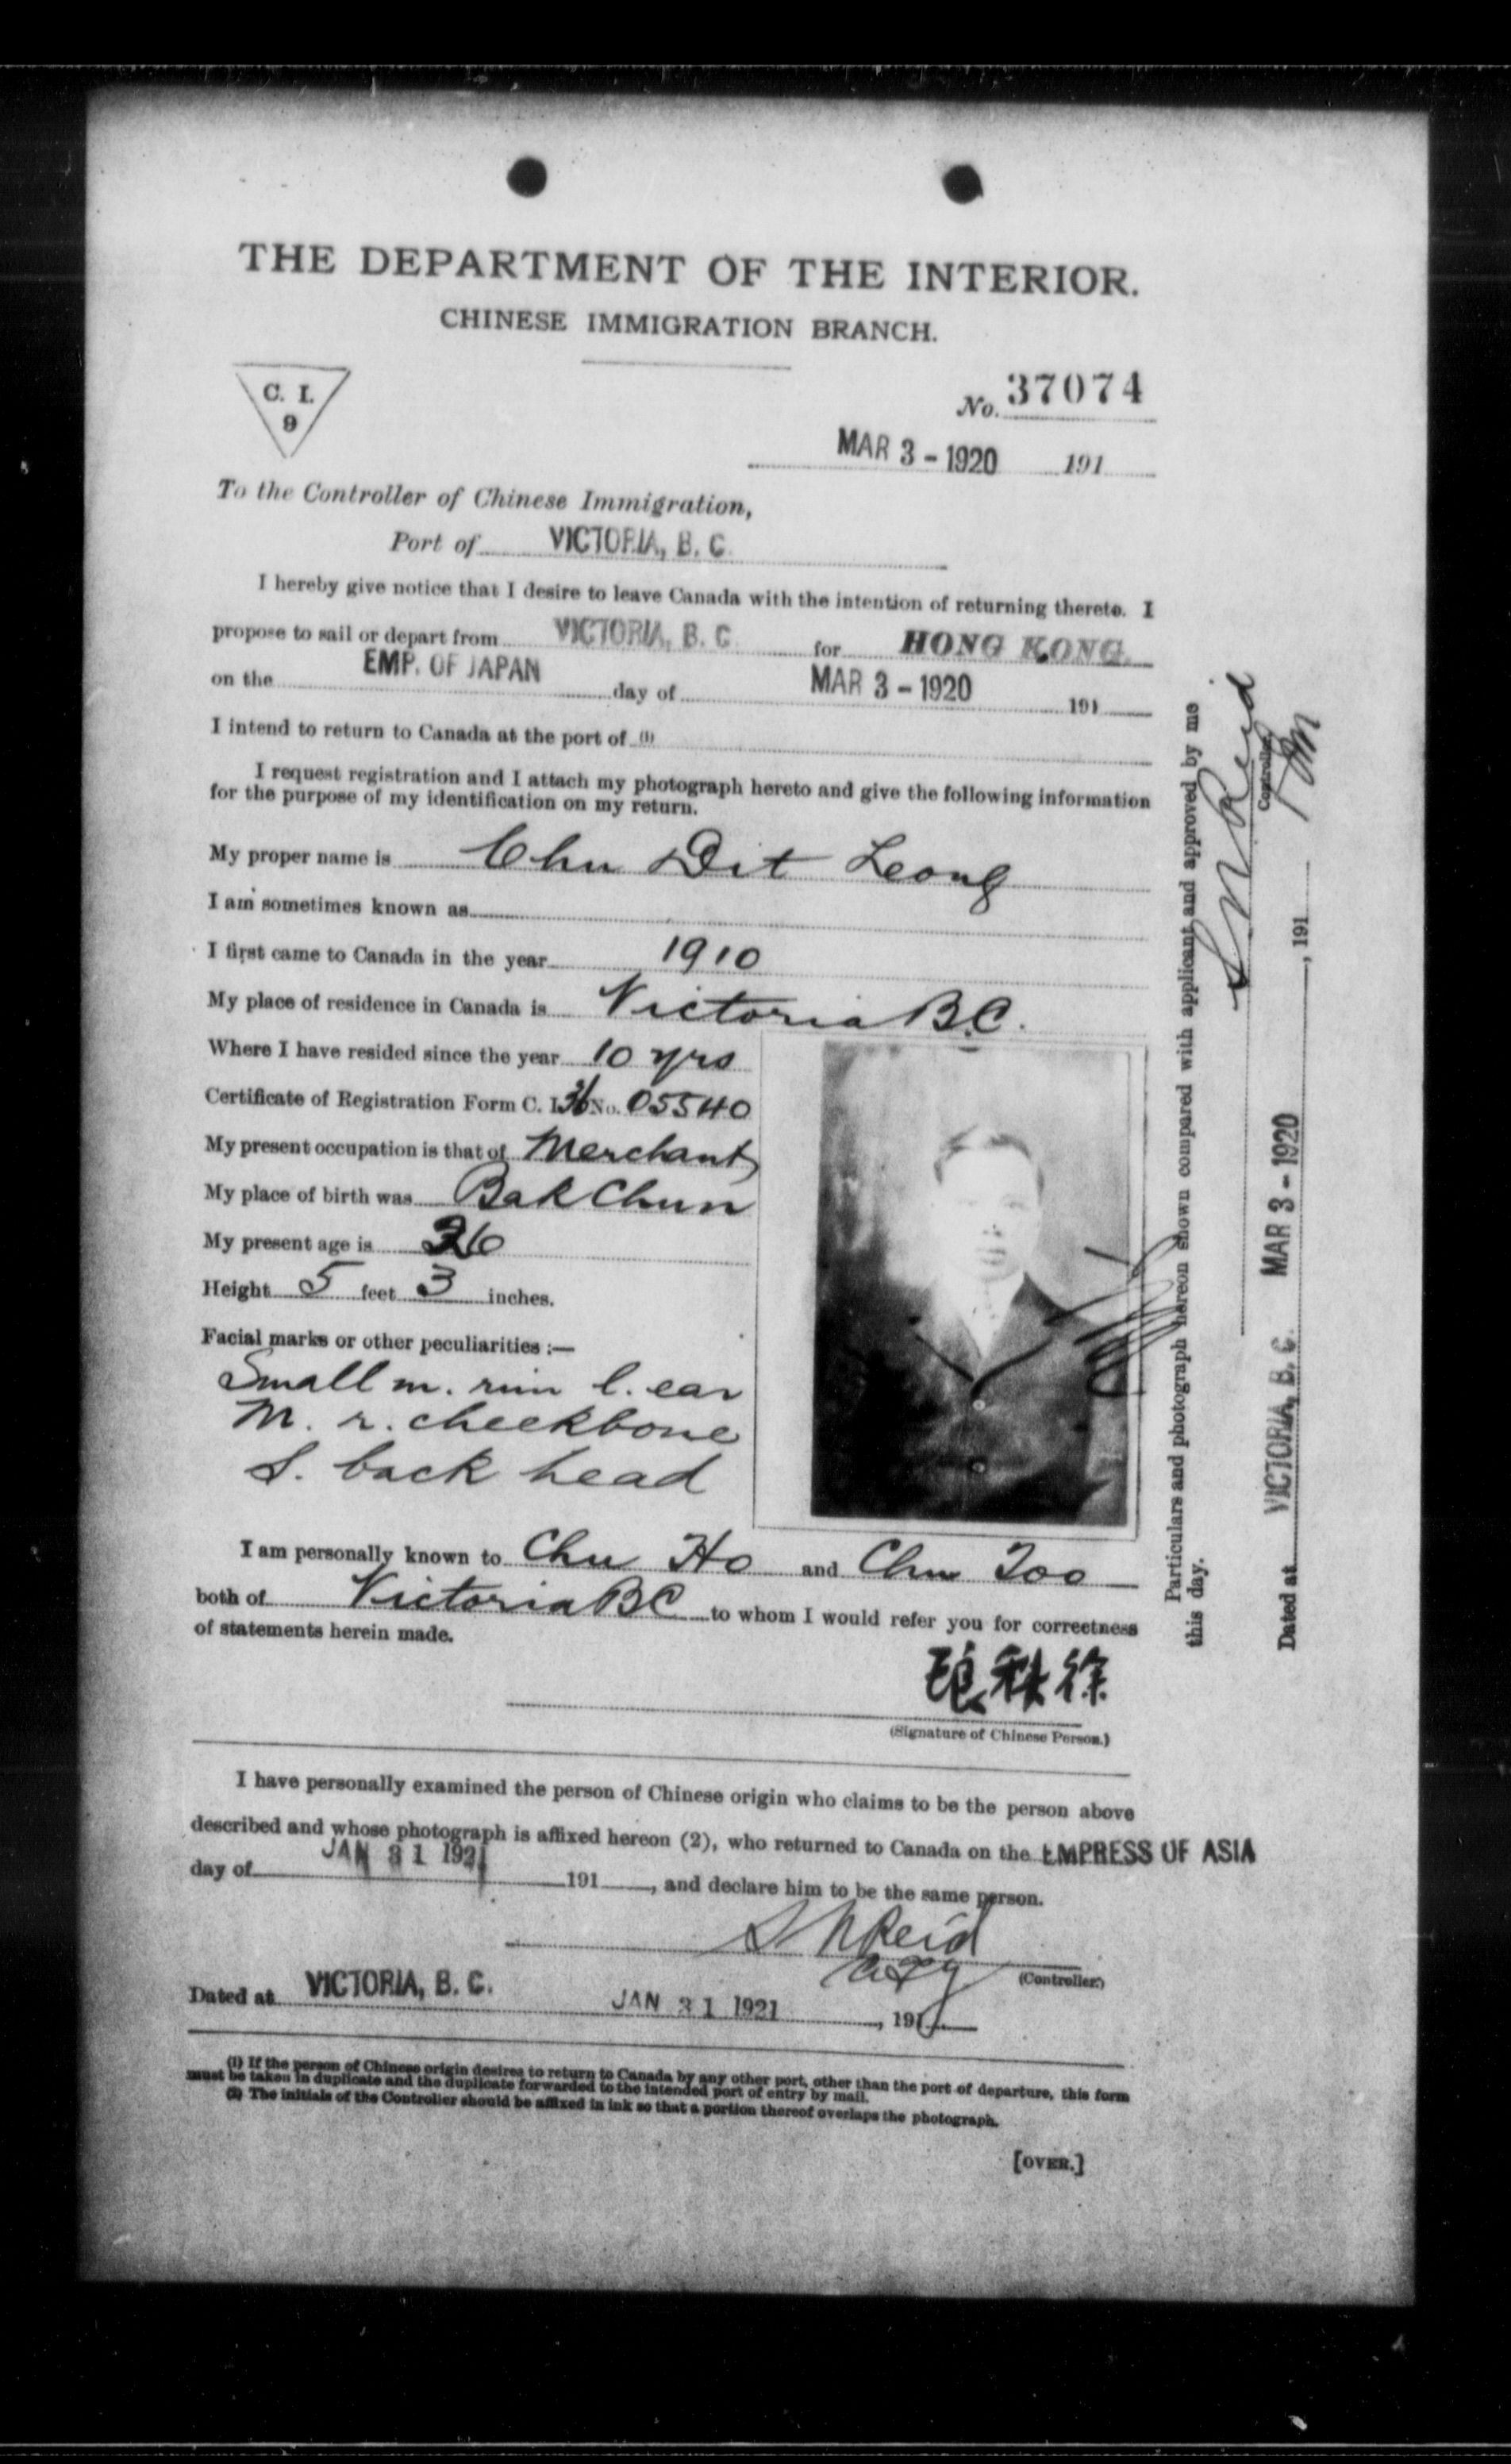 THE DEPARTMENT OF THE INTERIOR.
CHINESE IMMIGRATION BRANCH.
C. I.
9
No. 37074
MAR 3 - 1920 191
To the Controller of Chinese Immigration,
Port of VICTORIA, B. C.
I hereby give notice that I desire to leave Canada with the intention of returning thereto. I
propose to sail or depart from VICTORIA, B. C. for HONG KONG.
on the EMP. OF JAPAN day of MAR 3 - 1920 191
I intend to return to Canada at the port of (1)
I request registration and I attach my photograph hereto and give the following information
for the purpose of my identification on my return.
My proper name is Chu Dit Leong
I am sometimes known as
I first came to Canada in the year 1910
My place of residence in Canada is Victoria B.C.
Where I have resided since the year 10 yrs
Certificate of Registration Form C. I. 36 No. 05540
My present occupation is that of Merchant
My place of birth was Bak Chun
My present age is 36
Height 5 feet 3 inches.
Facial marks or other peculiarities :—
Small m. rim l. ear
M. r. cheekbone
S. back head
I am personally known to Chu Ho and Chu Too
both of Victoria BC to whom I would refer you for correctness
of statements herein made.
秋徐
(Signature of Chinese Person.)
I have personally examined the person of Chinese origin who claims to be the person above
described and whose photograph is affixed hereon (2), who returned to Canada on the EMPRESS OF ASIA
day of JAN 31 1921 191 , and declare him to be the same person.
S N Reid
actg (Controller.)
Dated at VICTORIA, B. C. JAN 31 1921 , 191
(1) If the person of Chinese origin desires to return to Canada by any other port, other than the port of departure, this form
must be taken in duplicate and the duplicate forwarded to the intended port of entry by mail.
(2) The initials of the Controller should be affixed in ink so that a portion thereof overlaps the photograph.
[OVER.]
Particulars and photograph hereon shown compared with applicant and approved by me
this day.
S N Reid
Controller.
Dated at VICTORIA, B. C. MAR 3 - 1920 , 191